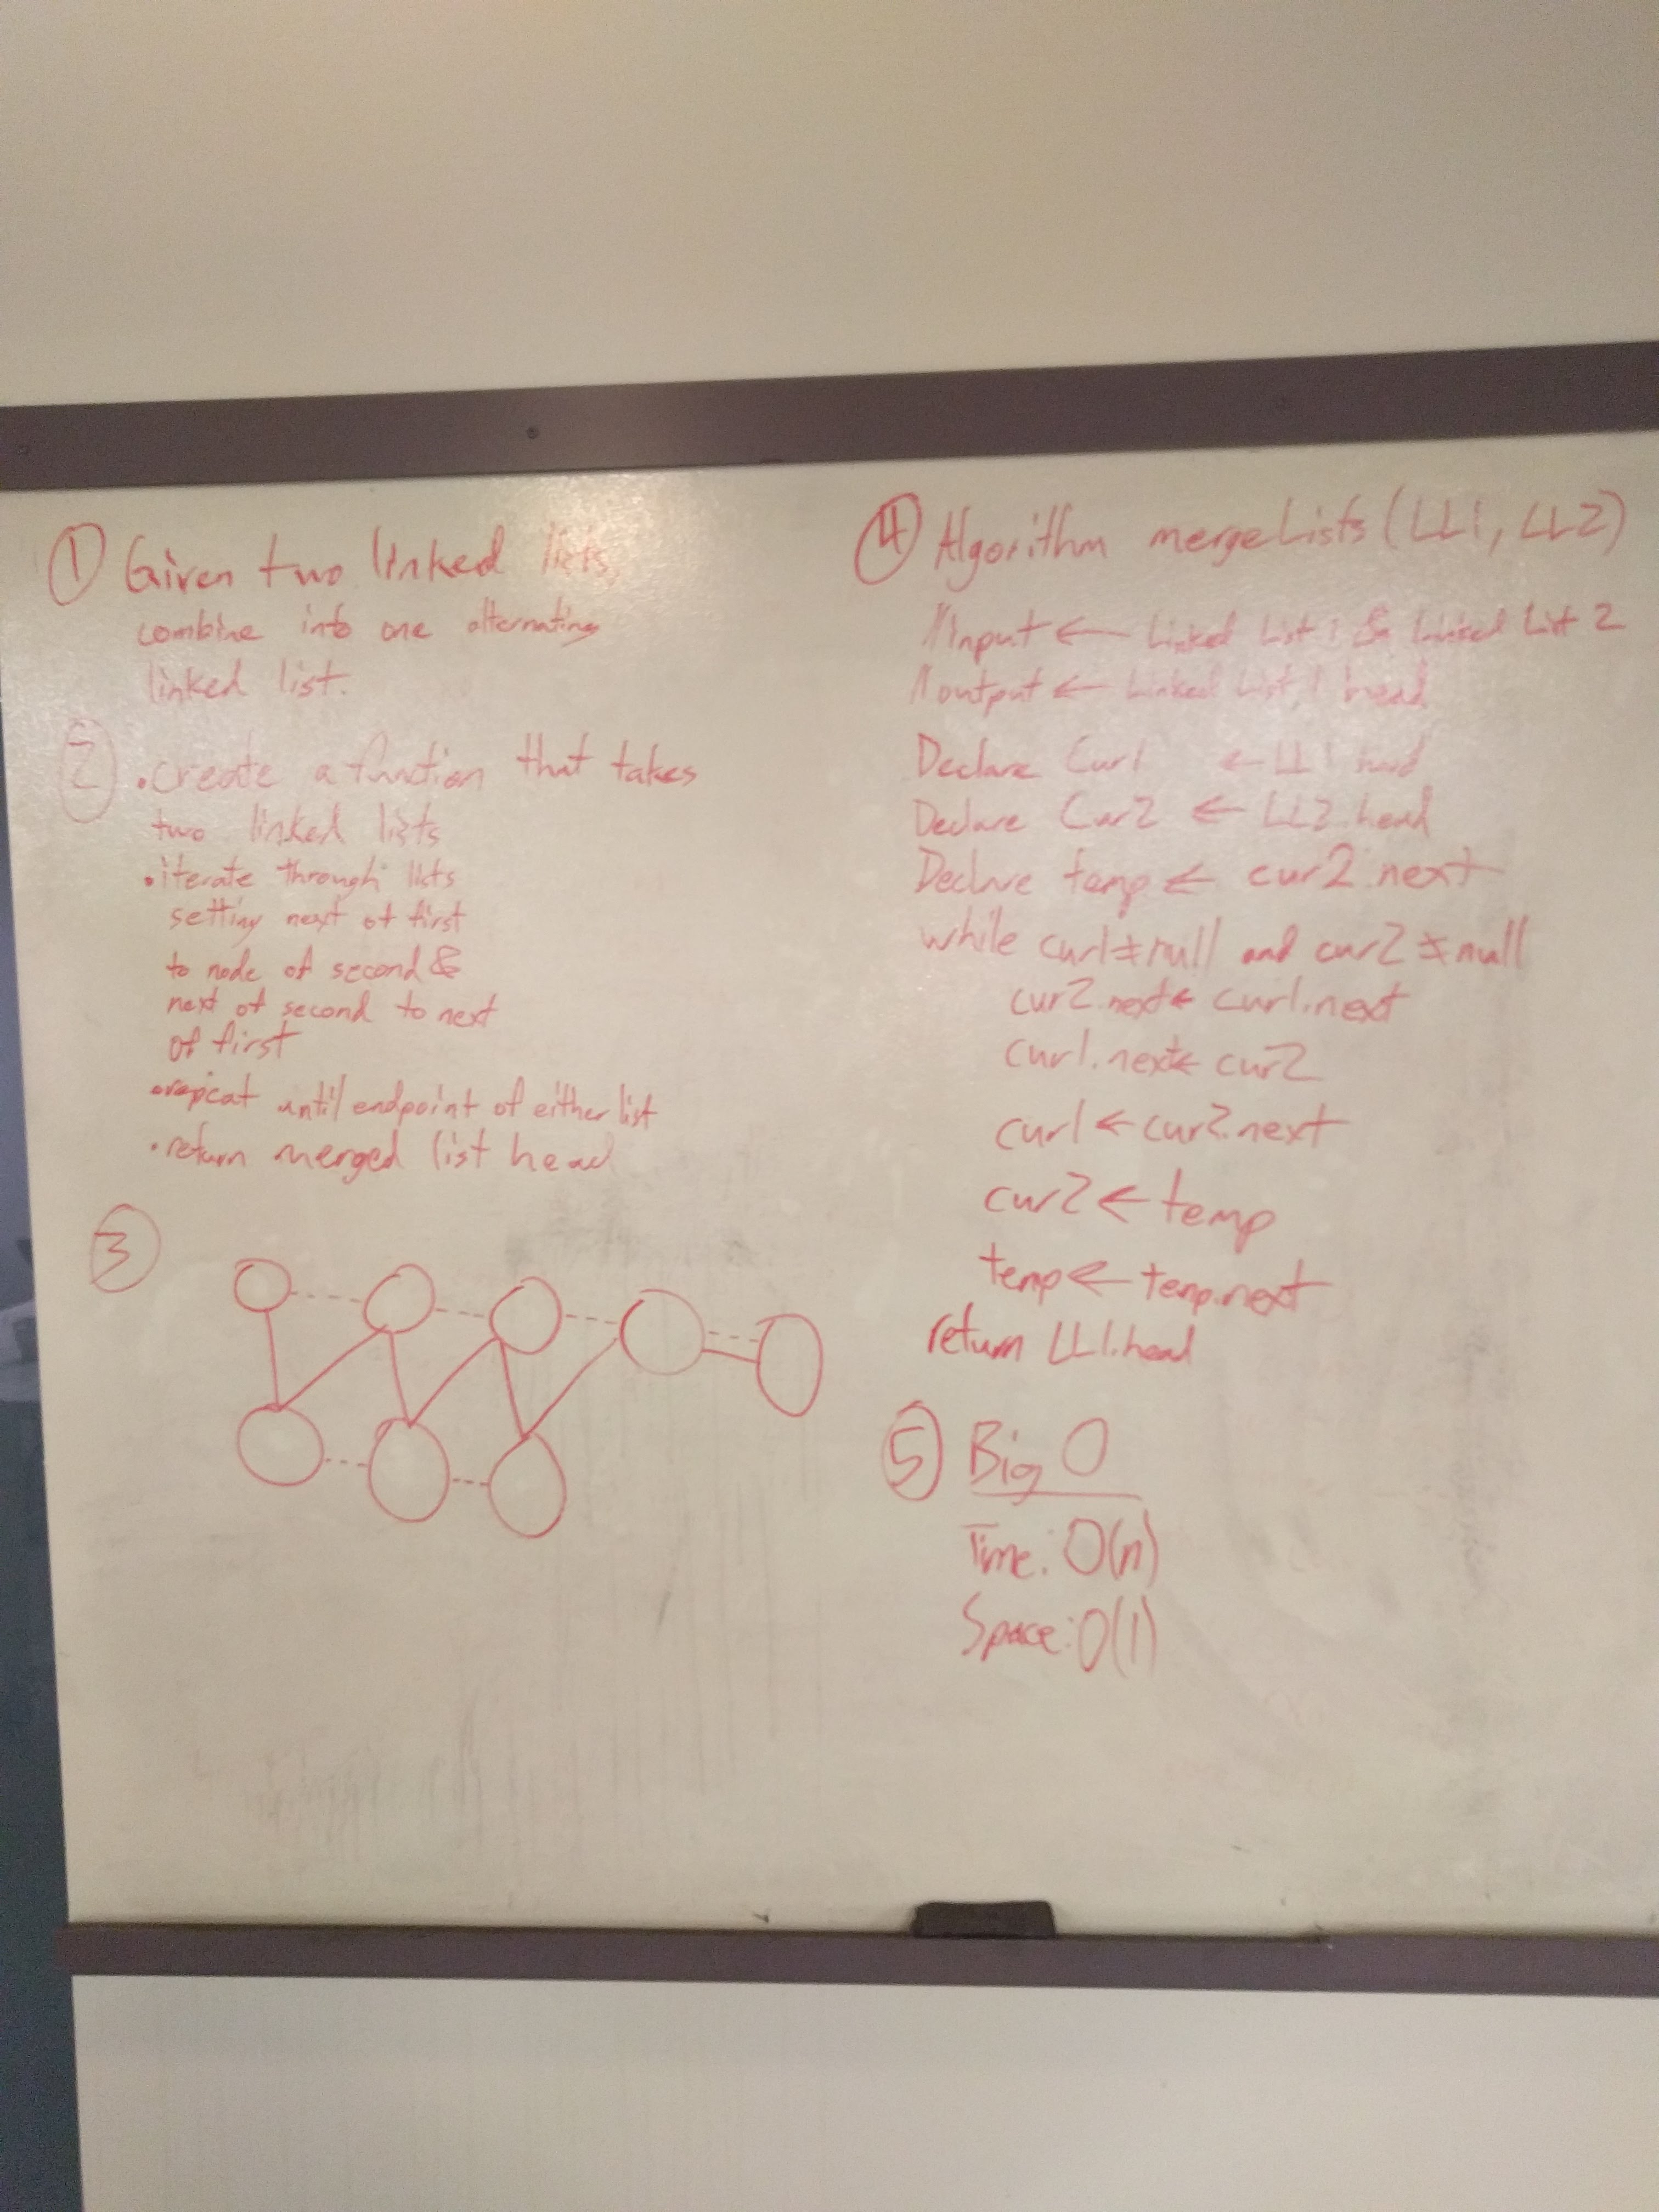 ① Given two linked lists,
combine into one alternating
linked list.
② • create a function that takes
two linked lists
• iterate through lists
setting next of first
to node of second &
next of second to next
of first
• repeat until endpoint of either list
• return merged list head
③
④ Algorithm mergeLists (LL1, LL2)
// input ← Linked List 1 & Linked List 2
// output ← Linked List 1 head
Declare Cur1 ← LL1.head
Declare Cur2 ← LL2.head
Declare temp ← cur2.next
while cur1 ≠ null and cur2 ≠ null
cur2.next ← cur1.next
cur1.next ← cur2
cur1 ← cur2.next
cur2 ← temp
temp ← temp.next
return LL1.head
⑤ Big O
Time: O(n)
Space: O(1)